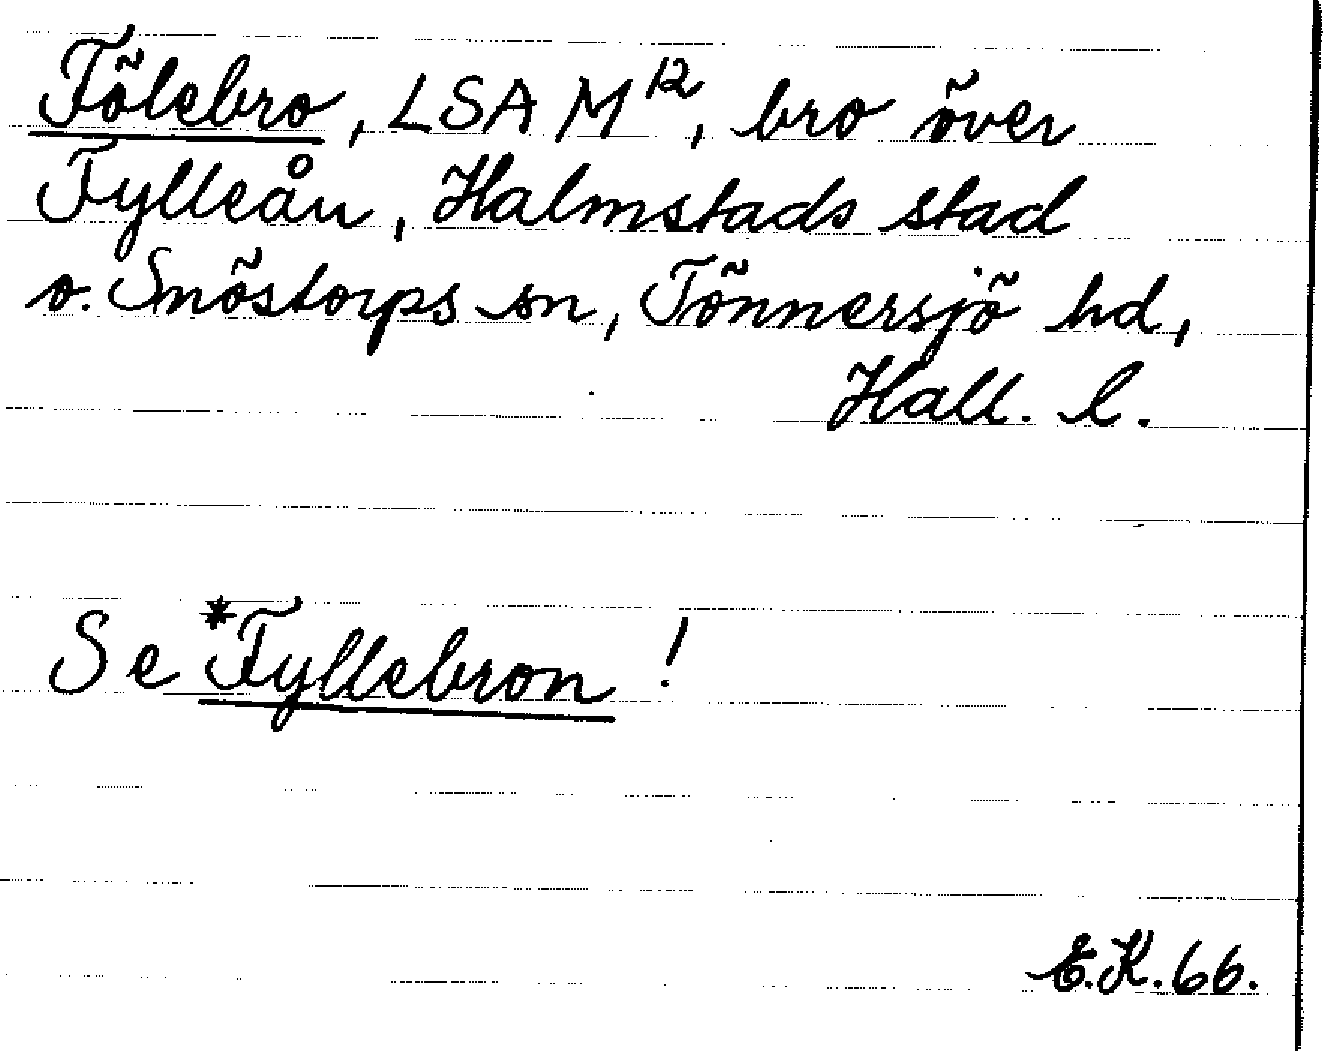 Fölebro, LSA M12, bro över
Fylleån, Halmstads stad
o. Snöstorps sn, Tönnersjö hd,
Hall. l.
Se *Fyllebron!
E.K. 66.